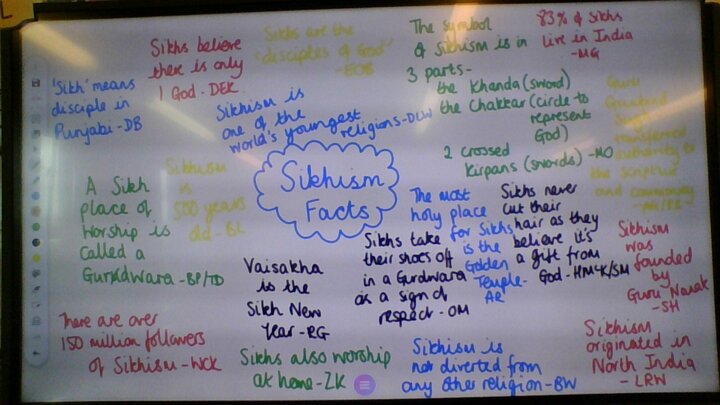 L
'Sikh' means
disciple in
Punjabi - DB
Sikhs believe
there is only
1 God - DEK
Sikhs are the
"disciples of God"
- EOB
The symbol
of Sikhism is in
3 parts -
the Khanda (sword)
the Chakkar (circle to
represent
God)
2 crossed
Kirpans (swords) - MO
83% of Sikhs
live in India
- MG
Sikhism is
one of the
world's youngest
religions - DLW
Guru
Gobind
Singh
transferred
authority to
the scripture
and community
A Sikh
place of
worship is
called a
Gurdwara - BP/TD
Sikhism
is
500 years
old - BL
Sikhism
Facts
The most
holy place
for Sikhs
is the
Golden
Temple -
AR
Sikhs never
cut their
hair as they
believe it's
a gift from
God - HMcK/SM
Sikhism
was
founded
by
Guru Nanak
- SH
Vaisakha
is the
Sikh New
Year - RG
Sikhs take
their shoes off
in a Gurdwara
as a sign of
respect - OM
There are over
150 million followers
of Sikhism - WCK
Sikhs also worship
at home - ZK
Sikhism is
not diverted from
any other religion - BW
Sikhism
originated in
North India
- LRW